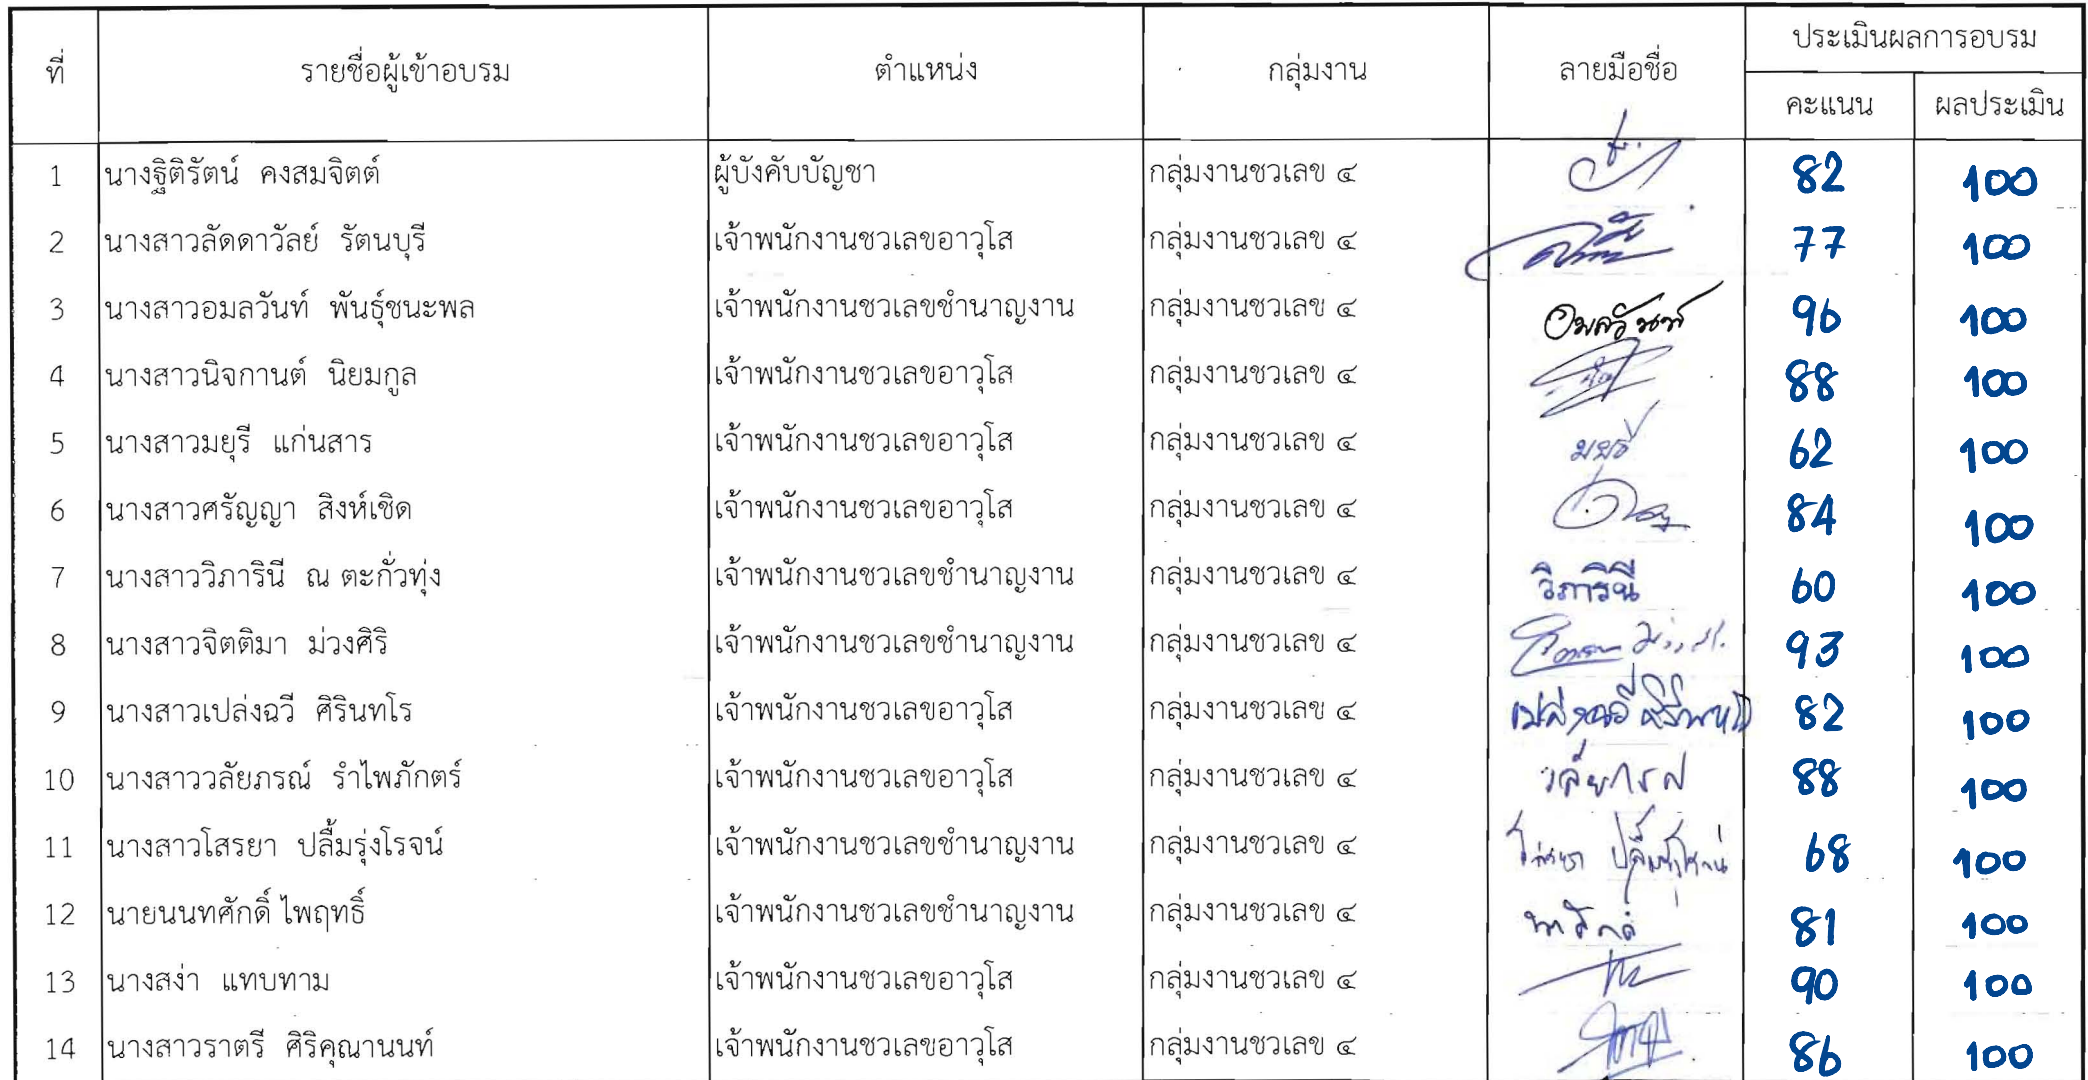 ที่ รายชื่อผู้เข้าอบรม ตำแหน่ง กลุ่มงาน ลายมือชื่อ ประเมินผลการอบรม
คะแนน ผลประเมิน
1 นางฐิติรัตน์ คงสมจิตต์ ผู้บังคับบัญชา กลุ่มงานชวเลข ๔ 82 100
2 นางสาวลัดดาวัลย์ รัตนบุรี เจ้าพนักงานชวเลขอาวุโส กลุ่มงานชวเลข ๔ 77 100
3 นางสาวอมลวันท์ พันธุ์ชนะพล เจ้าพนักงานชวเลขชำนาญงาน กลุ่มงานชวเลข ๔ อมลวันท์ 96 100
4 นางสาวนิจกานต์ นิยมกูล เจ้าพนักงานชวเลขอาวุโส กลุ่มงานชวเลข ๔ 88 100
5 นางสาวมยุรี แก่นสาร เจ้าพนักงานชวเลขอาวุโส กลุ่มงานชวเลข ๔ มยุรี 62 100
6 นางสาวศรัญญา สิงห์เชิด เจ้าพนักงานชวเลขอาวุโส กลุ่มงานชวเลข ๔ 84 100
7 นางสาววิภารินี ณ ตะกั่วทุ่ง เจ้าพนักงานชวเลขชำนาญงาน กลุ่มงานชวเลข ๔ วิภารินี 60 100
8 นางสาวจิตติมา ม่วงศิริ เจ้าพนักงานชวเลขชำนาญงาน กลุ่มงานชวเลข ๔ 93 100
9 นางสาวเปล่งฉวี ศิรินทโร เจ้าพนักงานชวเลขอาวุโส กลุ่มงานชวเลข ๔ เปล่งฉวี ศิรินทโร 82 100
10 นางสาววลัยภรณ์ รำไพภักตร์ เจ้าพนักงานชวเลขอาวุโส กลุ่มงานชวเลข ๔ วลัยภรณ์ 88 100
11 นางสาวโสรยา ปลื้มรุ่งโรจน์ เจ้าพนักงานชวเลขชำนาญงาน กลุ่มงานชวเลข ๔ โสรยา ปลื้มรุ่งโรจน์ 68 100
12 นายนนทศักดิ์ ไพฤทธิ์ เจ้าพนักงานชวเลขชำนาญงาน กลุ่มงานชวเลข ๔ 81 100
13 นางสง่า แทบทาม เจ้าพนักงานชวเลขอาวุโส กลุ่มงานชวเลข ๔ 90 100
14 นางสาวราตรี ศิริคุณานนท์ เจ้าพนักงานชวเลขอาวุโส กลุ่มงานชวเลข ๔ 86 100